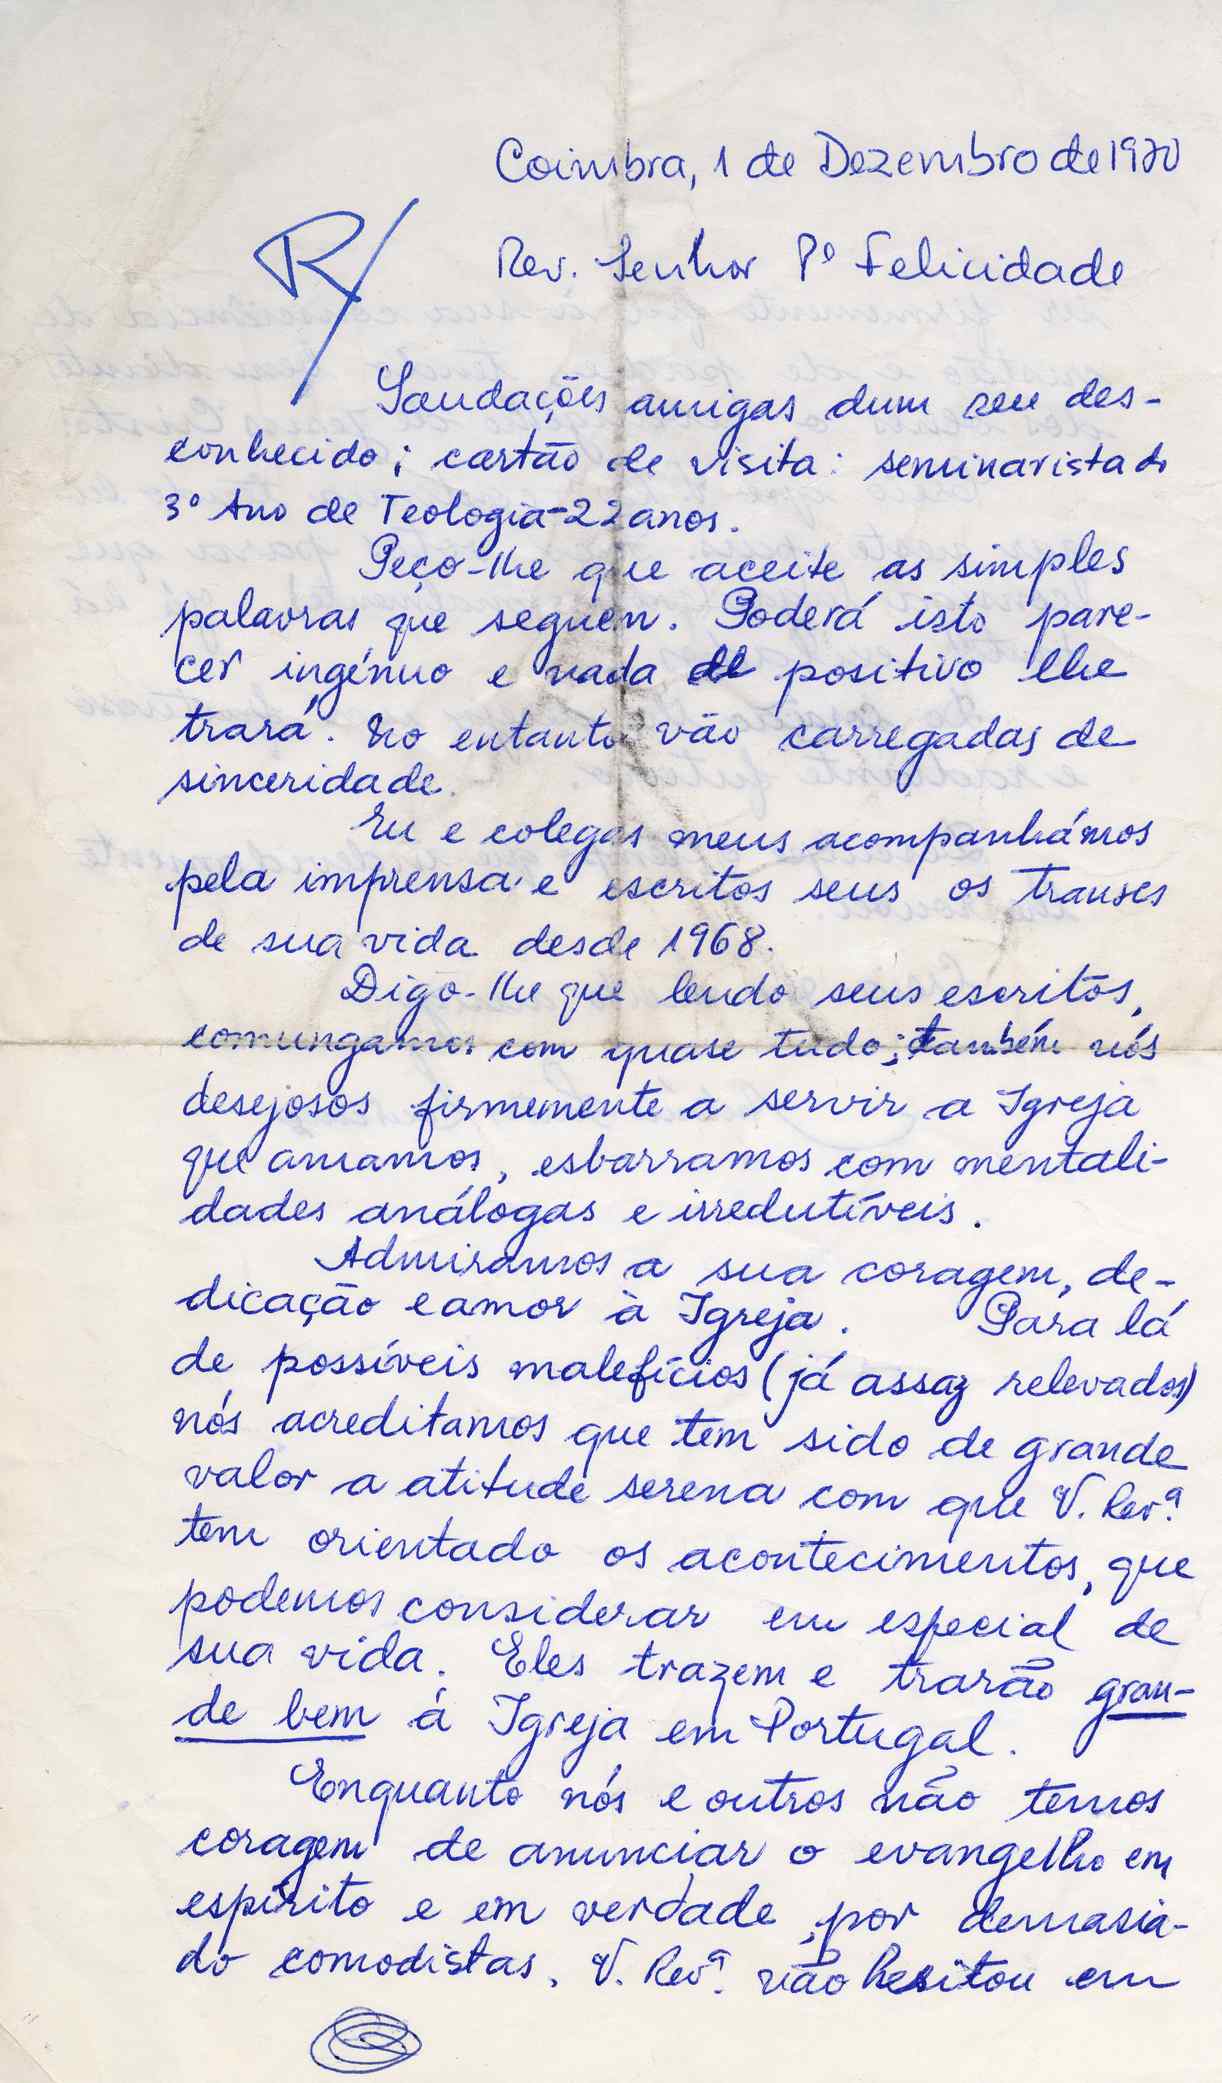 Coimbra, 1 de Dezembro de 1970
R/
Rev. Senhor Pe Felicidade
Saudações amigas dum seu des-
conhecido; cartão de visita: seminarista do
3º Ano de Teologia-22 anos.
Peço-lhe que aceite as simples
palavras que seguem. Poderá isto pare-
cer ingénuo e nada de positivo lhe
trará. No entanto vão carregadas de
sinceridade.
Eu e colegas meus acompanhámos
pela imprensa e escritos seus os transes
de sua vida desde 1968.
Digo-lhe que lendo seus escritos,
comungamos com quase tudo; também nós
desejosos firmemente a servir a Igreja
que amamos, esbarramos com mentali-
dades análogas e irredutíveis.
Admiramos a sua coragem, de-
dicação e amor à Igreja. Para lá
de possíveis malefícios (já assaz relevados)
nós acreditamos que tem sido de grande
valor a atitude serena com que V. Revª.
tem orientado os acontecimentos, que
podemos considerar em especial de
sua vida. Eles trazem e trarão gran-
de bem á Igreja em Portugal.
Enquanto nós e outros não temos
coragem de anunciar o evangelho em
espírito e em verdade, por demasia-
do comodistas, V. Revª. não hesitou em